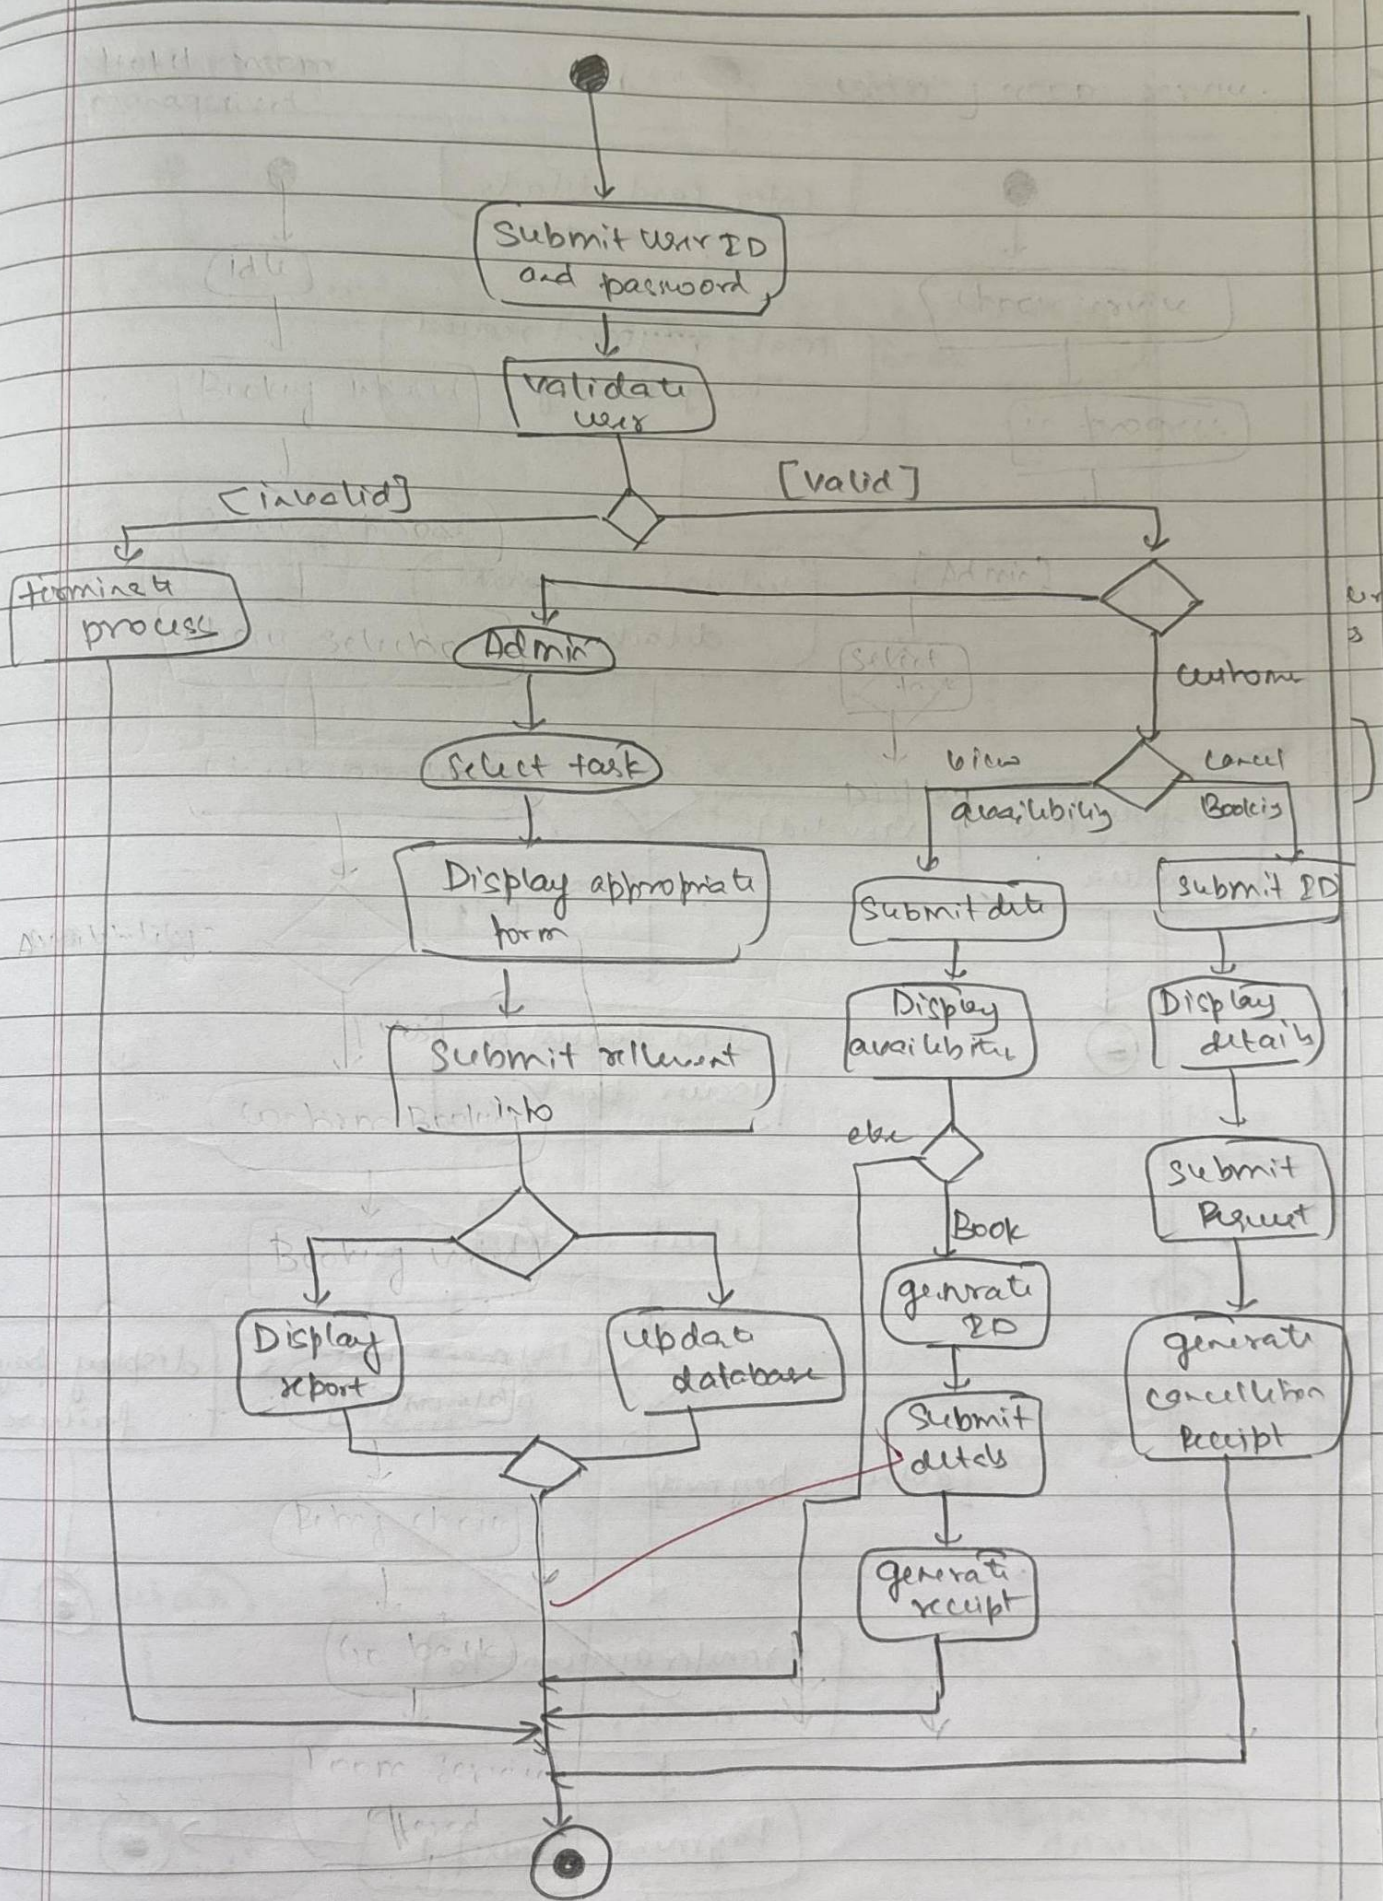 Submit User ID
and password
Validate
user
[invalid]
[valid]
terminate
process
Admin
Customer
Select task
view
availability
cancel
Booking
Display appropriate
form
Submit date
Submit ID
Display
availability
Display
details
Submit rellevent
info
else
Book
Submit
Request
generate
ID
Display
report
update
database
generate
cancellation
Receipt
Submit
details
generate
receipt